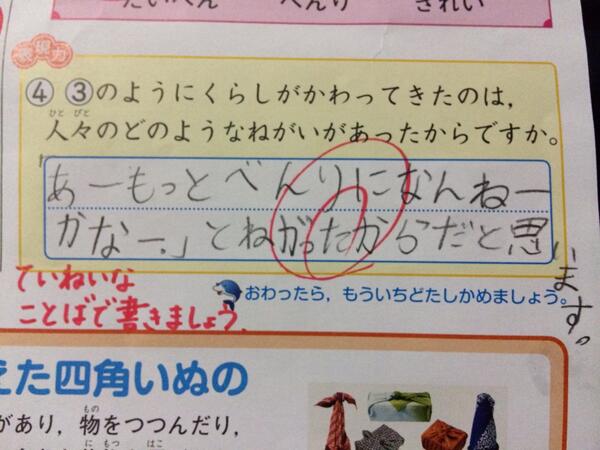 たいへん　べんり　きれい
表現力
④ ③のようにくらしがかわってきたのは，
ひとびと
人々のどのようなねがいがあったからですか。
「あーもっとべんりになんねー
かなー。」とねがったからだと思
います。
ていねいな
ことばで書きましょう。
おわったら，もういちどたしかめましょう。
えた四角いぬの
があり，物をつつんだり，
もの
にもつ　はこ